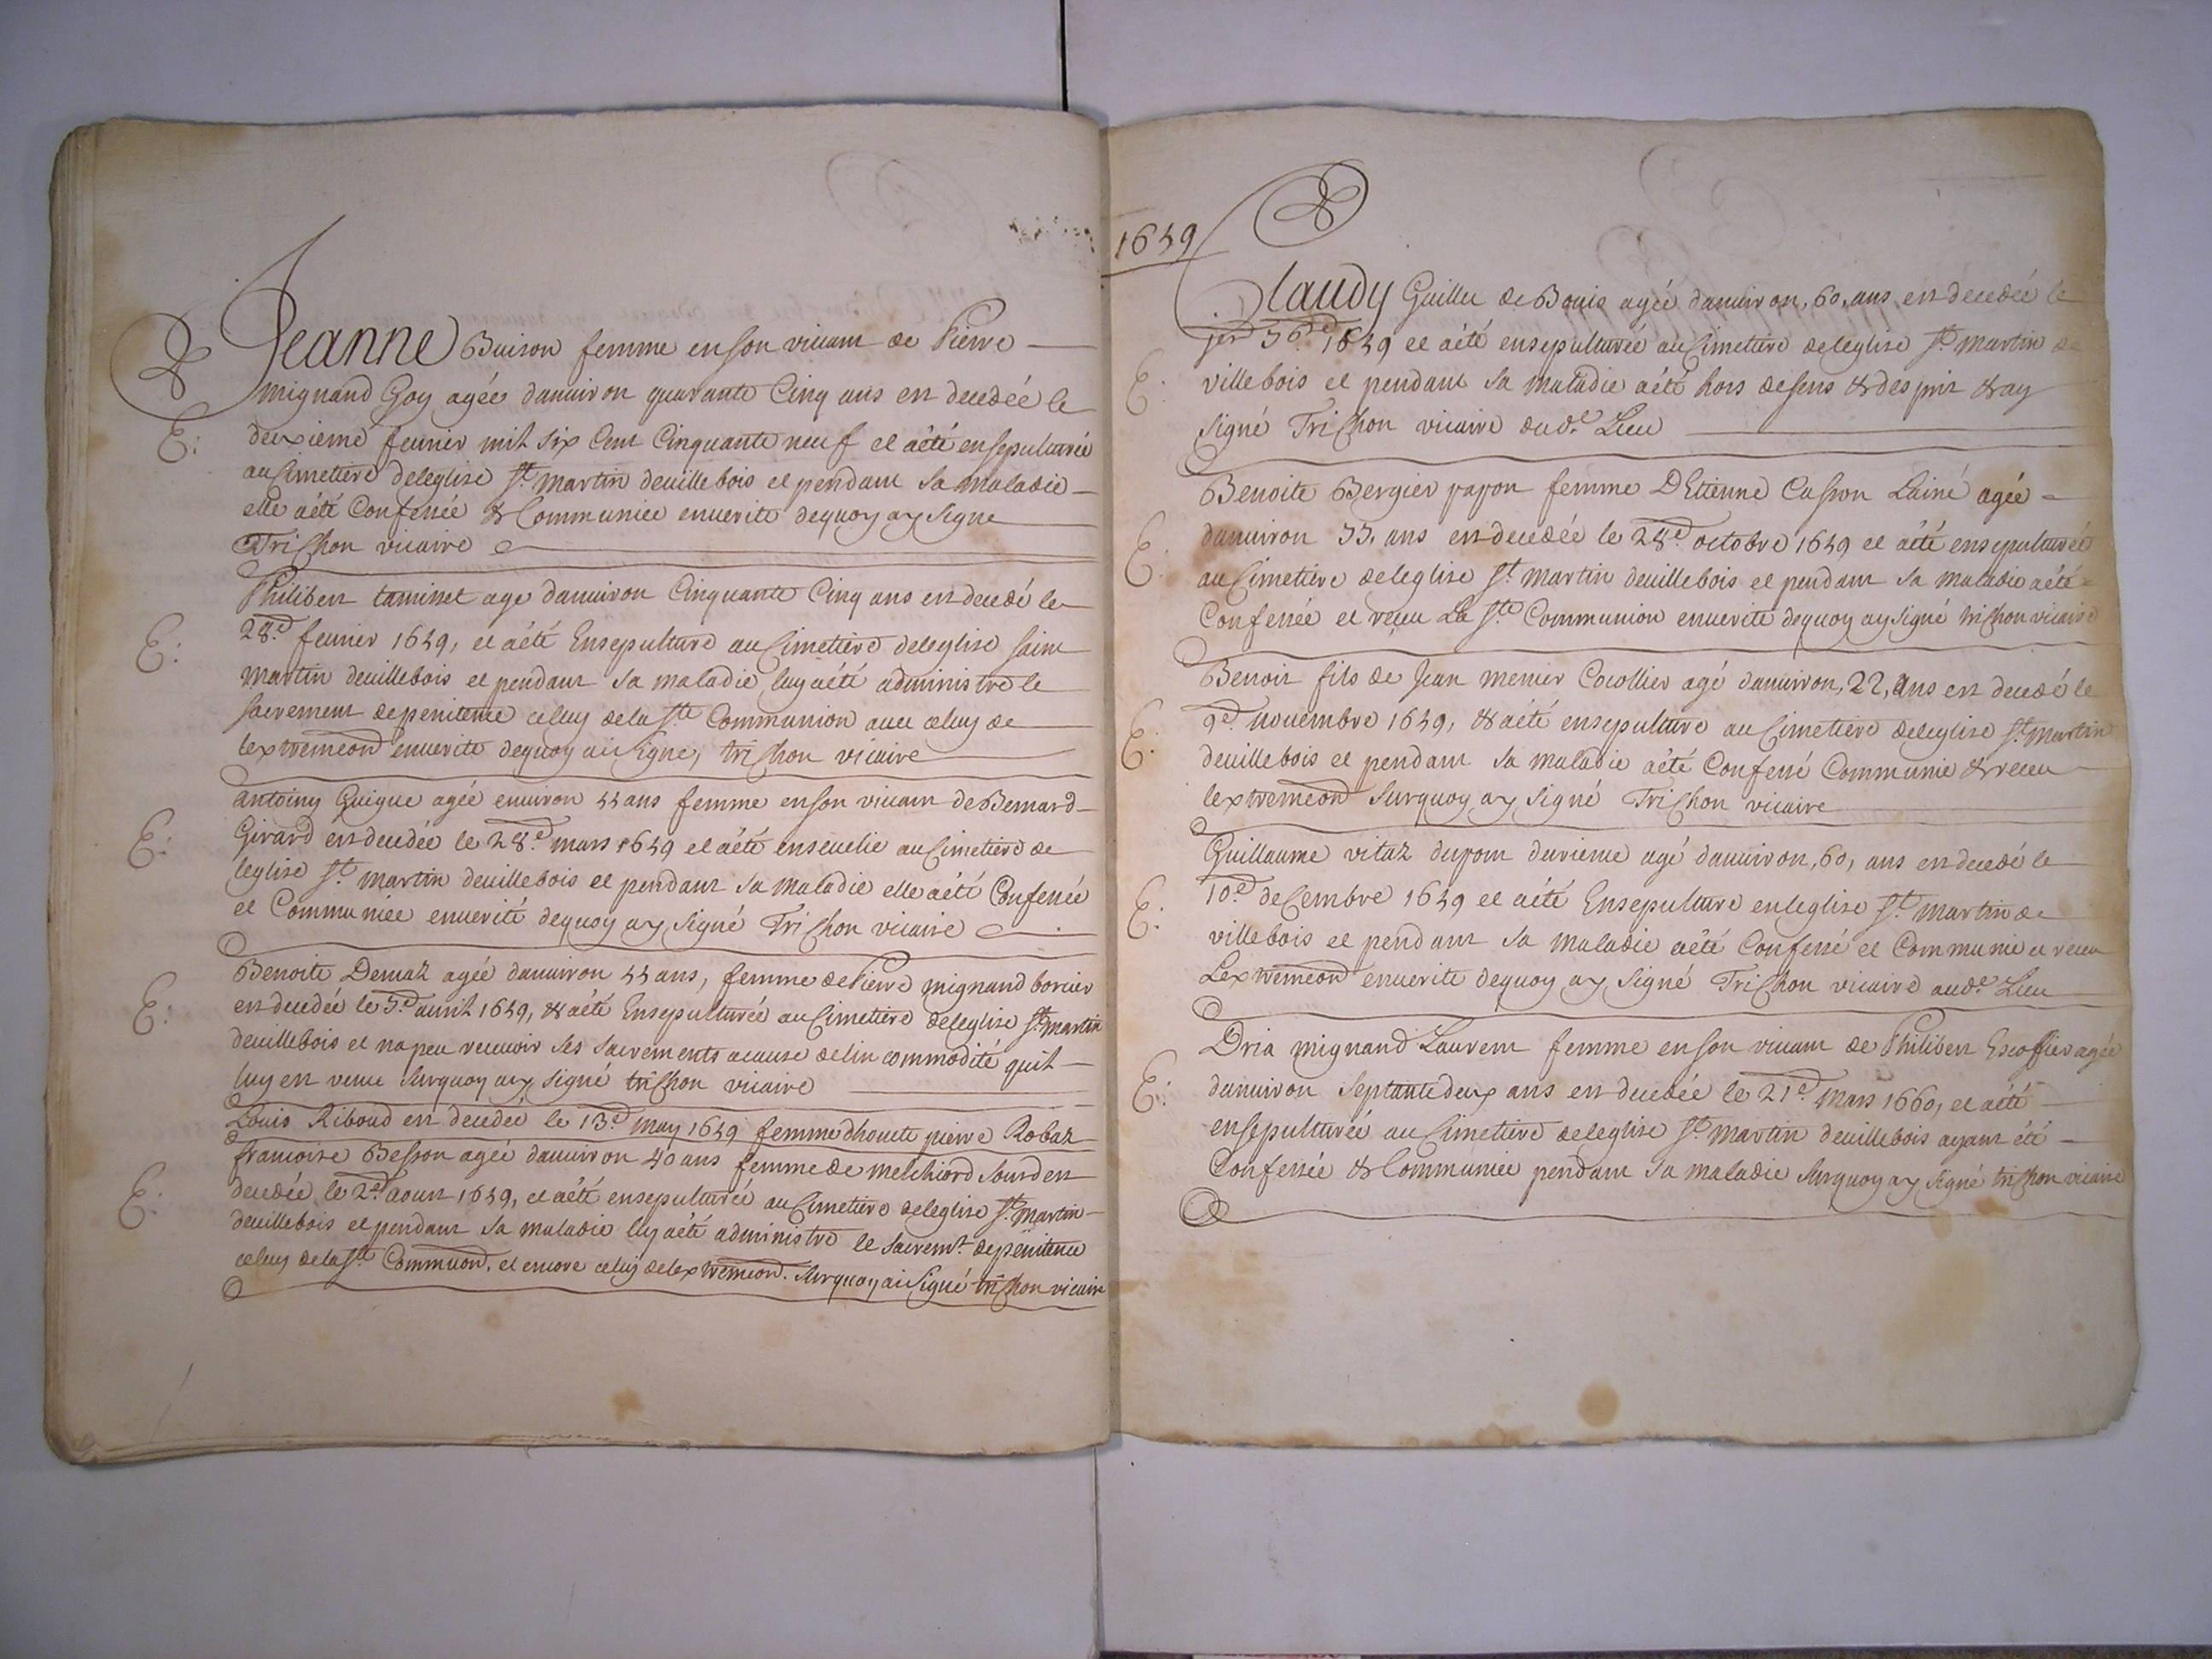 Jeanne Buison femme en son viuant de Pierre
mignand Goy agée danuiron quarante Cinq ans est decedée le
E: deuxieme feurier mil six Cent Cinquante neuf et aété ensepulturée
au Cimetiere deleglise St. martin deuillebois et pendant sa maladie
elle aété Confessée & Communiee enuerite dequoy ay signe
Trichon vicaire
Philibert taminet age danuiron Cinquante Cinq ans est decedé le
E: 28.e feurier 1659, et aété Ensepulture au Cimetiere deleglise saint
martin deuillebois et pendant sa maladie luy aété administre le
sacrement depenitence celuy dela Ste Communion auec celuy de
lextremeon enuerite dequoy ai signe, trichon vicaire
antoiny Guigue agée enuiron 55 ans femme enson viuant de Bernard
E: Girard est decedée le 28.e mars 1659 et aété enseuelie au Cimetiere de
leglise St. martin deuillebois et pendant sa maladie elle aété Confessée
et Communiée enuerité dequoy ay signé Trichon vicaire
Benoite Demaz agée danuiron 55 ans, femme de Pierre mignand borier
E: est decedée le 5.e auril 1659, & aété Ensepulturée au Cimetiere deleglise St martin
deuillebois et na peu receuoir ses sacrements acause delincommodité quil
luy est venue surquoy ay signé trichon vicaire
Louis Riboud est decedée le 13.e may 1659 femme dhonete pierre Robaz
francoise Besson agée danuiron 40 ans femme de melchiord sourd est
E: decedée le 2.e aoust 1659, et aété ensepulturée au Cimetiere deleglise St. martin
deuillebois et pendant sa maladie luy aété administre le sacremt. depenitence
celuy dela Ste Commuon, et encore celuy delextremeon. surquoy ai signé trichon vicaire
1659
Claudy Guillet de Bouis agée danuiron, 60, ans, est decedée le
1659 et aété ensepulturée au Cimetiere deleglise St. martin de
E: villebois et pendant sa maladie aété hors desens & desprit & ay
signé Trichon vicaire dud.e Lieu
Benoite Bergier papon femme DEtienne Casson Lainé agée
E: danuiron 55, ans est decedée le 28.e octobre 1659 et aété ensepulturée
au Cimetiere deleglise St. martin deuillebois et pendant sa maladie aété
Confessée et receu La Ste Communion enuerite dequoy ay signé trichon vicaire
Benoit fils de Jean menier Cocollier agé danuiron, 22, ans est decedé le
E: 9.e nouembre 1659, & aété ensepulture au Cimetiere deleglise St. martin
deuillebois et pendant sa maladie aété Confessé Communie & receu
lextremeon surquoy ay signé Trichon vicaire
Guillaume vitaz dupont agé danuiron, 60, ans est decedé le
E: 10.e decembre 1659 et aété Ensepulture enleglise St. martin de
villebois et pendant sa maladie aété Confessé et Communie et receu
Lextremeon enuerite dequoy ay signé Trichon vicaire aud.e Lieu
Dria mignand Laurent femme enson viuant de Philibert Escoffier agée
E: danuiron septantedeux ans est decedée le 21.e mars 1660, et aété
ensepulturée au Cimetiere deleglise St. martin deuillebois ayant été
Confessée & Communiée pendant sa maladie surquoy ay signé trichon vicaire